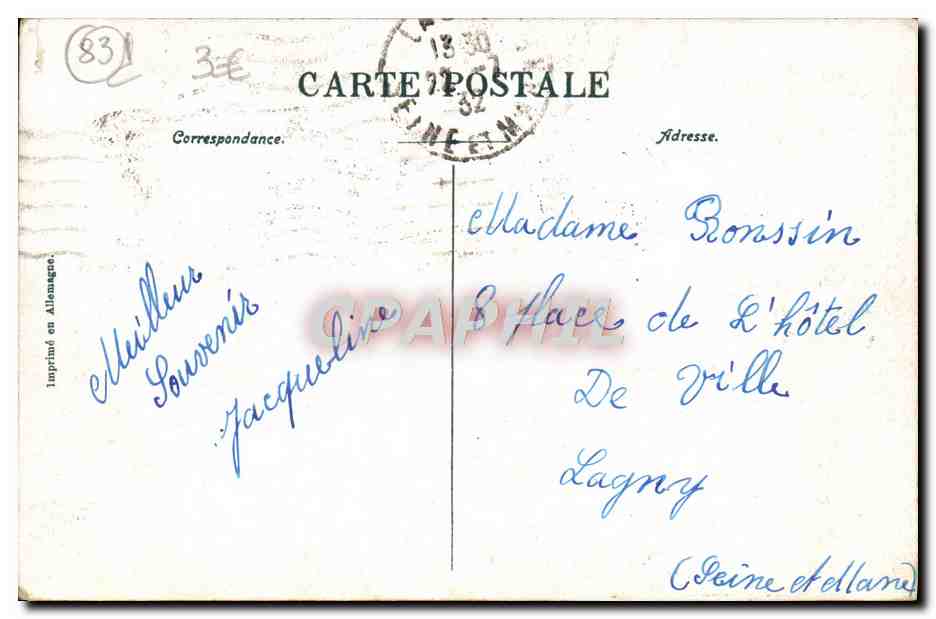 83
3€
13 30
32
EINE ET M
CARTE POSTALE
Correspondance.
Adresse.
Imprimé en Allemagne.
Meilleur
Souvenir
Jacqueline
CPAPHIL
Madame Ronssin
8 Place de L'hôtel
De Ville
Lagny
(Seine et Marne)